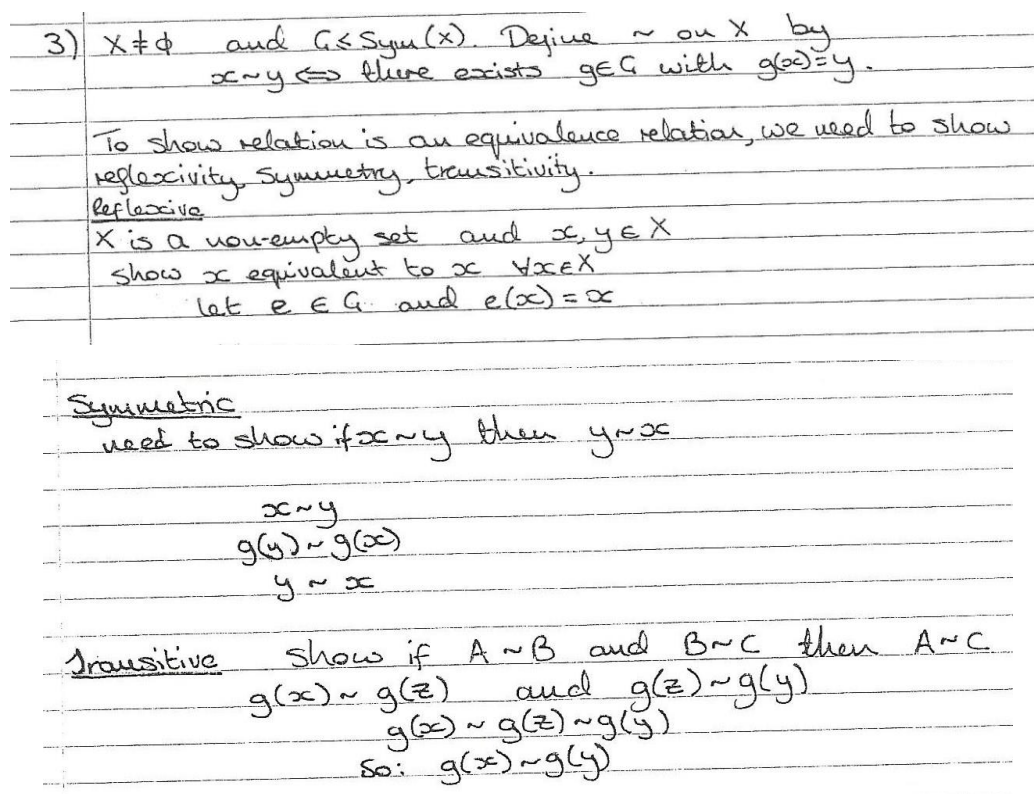 3) X ≠ ϕ and G ≤ Sym(X). Define ~ on X by
x~y ⟺ there exists g∈G with g(x)=y.
To show relation is an equivalence relation, we need to show
reflexivity, symmetry, transitivity.
Reflexive
X is a non-empty set and x, y ∈ X
show x equivalent to x ∀x∈X
let e ∈ G and e(x) = x
Symmetric
need to show if x~y then y~x
x~y
g(y) ~ g(x)
y ~ x
Transitive show if A ~B and B~C then A~C
g(x) ~ g(z) and g(z) ~ g(y)
g(x) ~ g(z) ~ g(y)
So: g(x) ~ g(y)